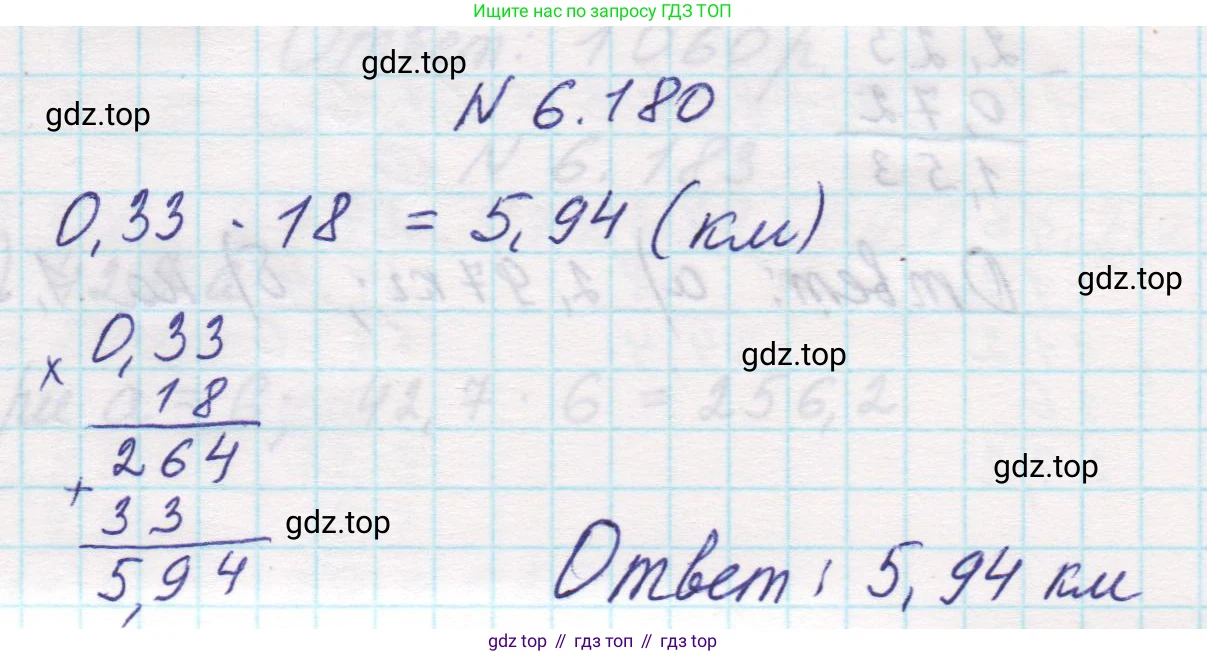 Ищите нас по запросу ГДЗ ТОП
gdz.top
N 6.180
gdz.top
0,33 · 18 = 5,94 (км)
gdz.top
× 0,33
18
gdz.top
264
+ 33
5,94
gdz.top
gdz.top
Ответ: 5,94 км
gdz top // гдз топ // гдз top